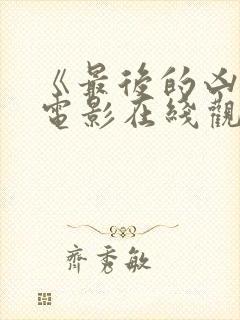 《最後的凶
電影在綫觀
齊秀敏